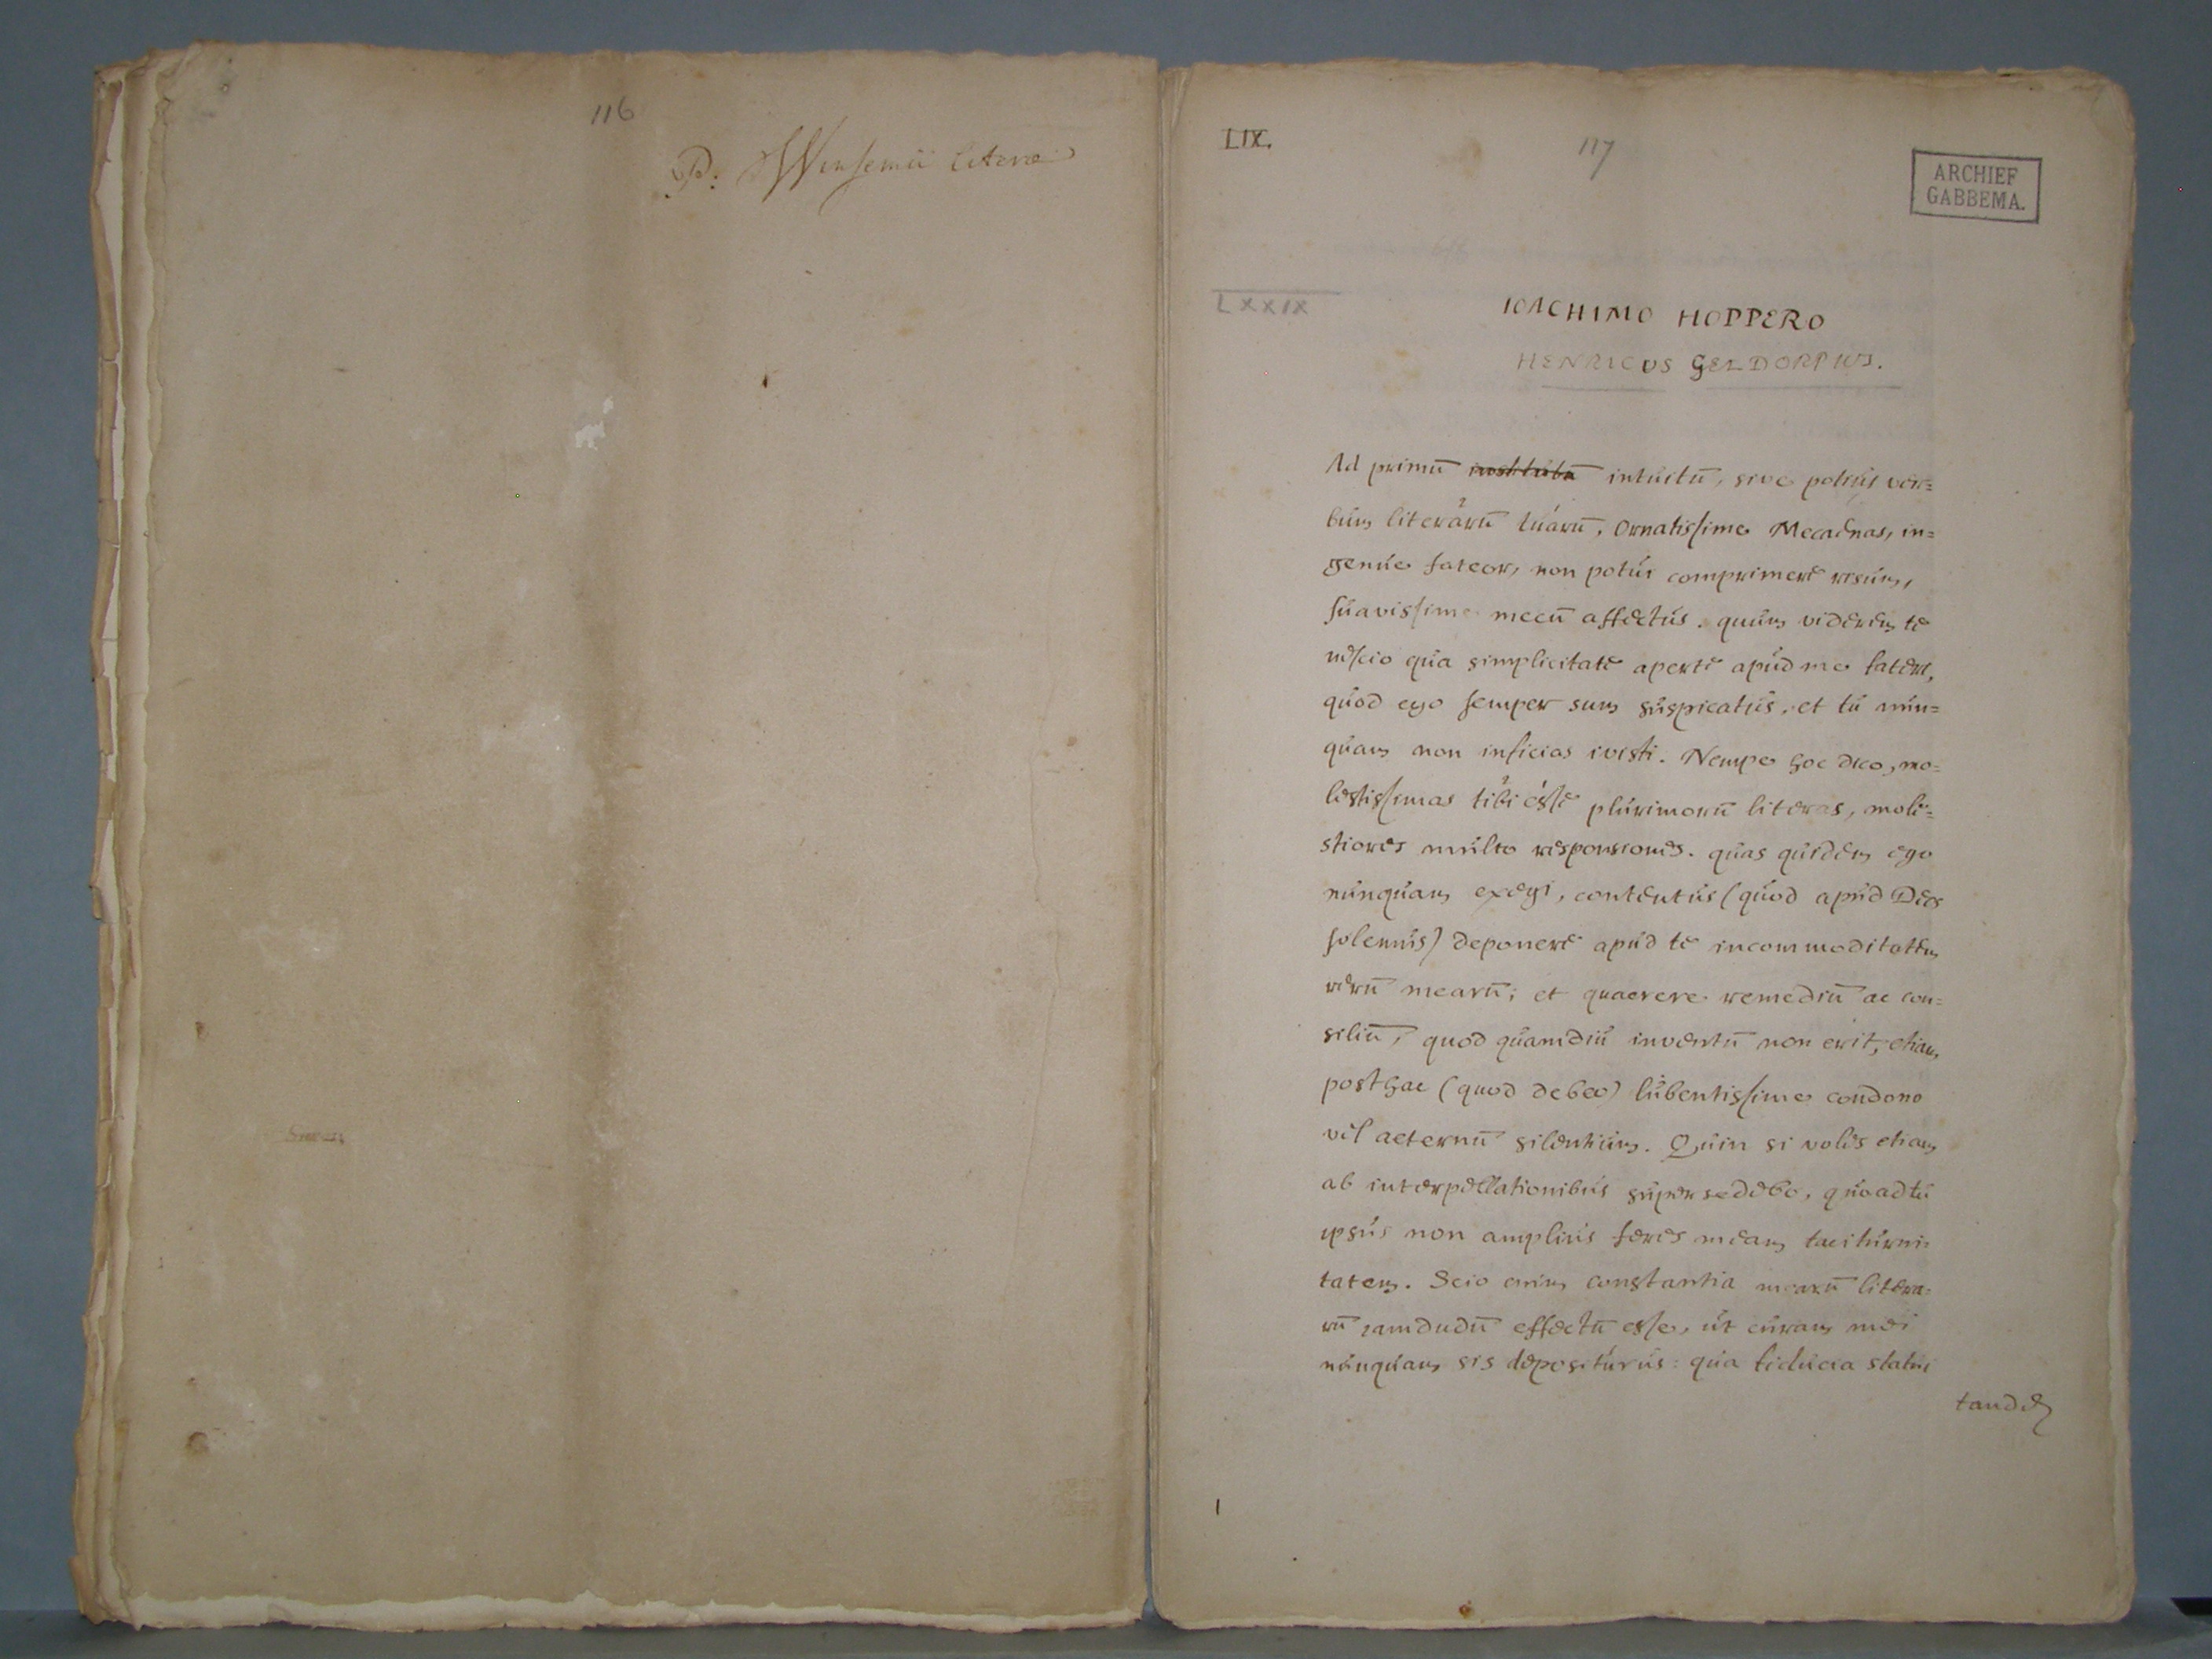 116
P: Winsemii literae
LIX.
117
ARCHIEF
GABBEMA.
LXXIX
IOACHIMO HOPPERO
HENRICUS GELDORPIUS.
Ad primū intuitū, sive potius ver=
bum literarū tuarū, ornatissime Mecaenas, in=
genue fateor, non potui comprimere risum,
suavissime mecū affectus. quum viderem te
nescio qua simplicitate aperte apud me fateri,
quod ego semper sum suspicatus, et tu nun=
quam non inficias ivisti. Nempe hoc dico, mo=
lestissimas tibi esse plurimorū literas, mole=
stiores multo responsiones. quas quidem ego
nunquam exegi, contentus (quod apud Deos
solemus) deponere apud te incommoditatem
rerū mearū; et quaerere remediū ac con=
siliū, quod quamdiu inventū non erit, etiam
posthac (quod debeo) lubentissime condono
vel aeternū silentium. Quin si voles etiam
ab interpellationibus supersedebo, quoad tu
ipsus non amplius feres meam taciturni=
tatem. Scio enim constantia mearū litera=
rū iamdudū effectū esse, ut curam mei
nunquam sis depositurus: qua fiducia statui
tandem
1